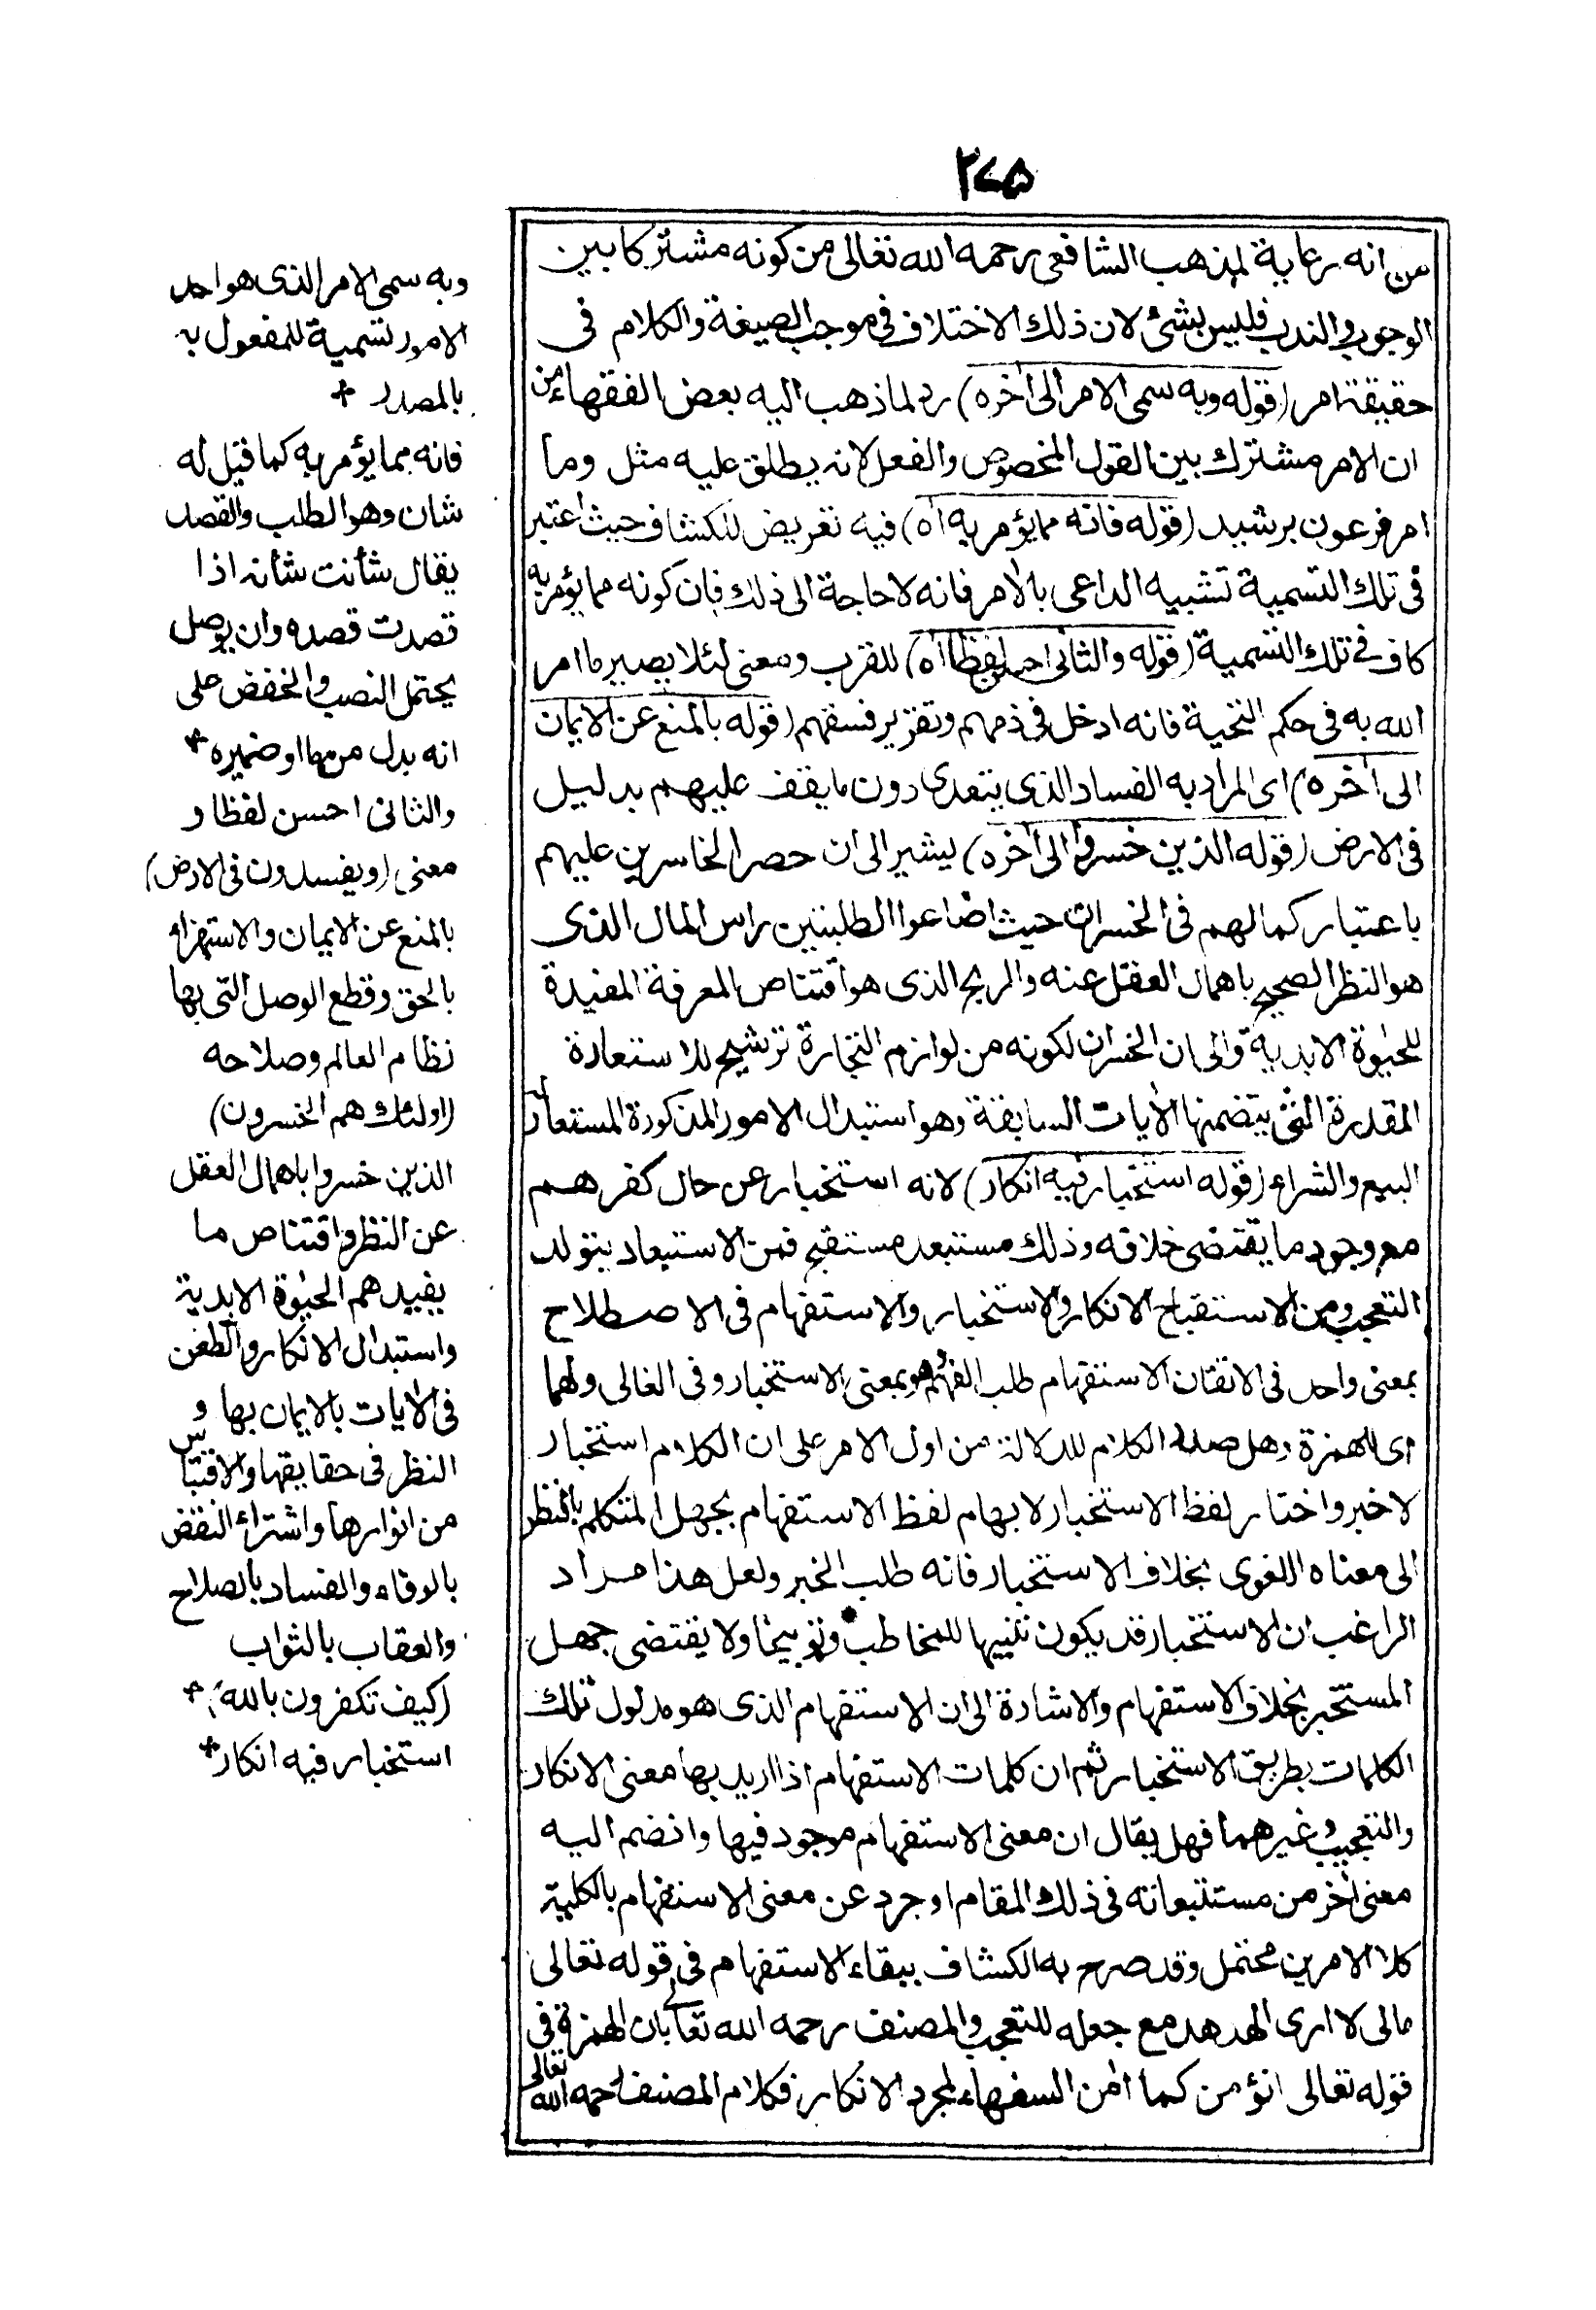 ٢٧٥
من انه رعاية لمذهب الشافعى رحمه الله تعالى من كونه مشتركا بين
الوجوب والندب فليس بشئ لان ذلك الاختلاف فى موجب الصيغة والكلام فى
حقيقة امر (قوله وبه سمى الامر الى اٰخره) رد لما ذهب اليه بعض الفقهاء من
ان الامر مشترك بين القول المخصوص والفعل لانه يطلق عليه مثل وما
امر فرعون برشيد (قوله فانه مما يؤمر به اه) فيه تعريض للكشاف حيث اعتبر
فى تلك التسمية تشبيه الداعى بالاٰمر فانه لا حاجة الى ذلك فان كونه مما يؤمر به
كاف فى تلك التسمية (قوله والثانى احسن لفظا اه) للقرب ومعنى لئلا يصير ما امر
الله به فى حكم التنحية فانه ادخل فى ذمهم وتقرير فسقهم (قوله بالمنع عن الايمان
الى اٰخره) اى المراد به الفساد الذى يتعدى دون ما يقف عليهم بدليل
فى الارض (قوله الذين خسروا الى اٰخره) يشير الى ان حصر الخاسرين عليهم
باعتبار كمالهم فى الخسران حيث اضاعوا الطلبتين راس المال الذى
هو النظر الصحيح باهمال العقل عنه والربح الذى هو اقتناص المعرفة المفيدة
للحيٰوة الابدية والى ان الخسران لكونه من لوازم التجارة ترشيح للاستعارة
المقدرة التى يتضمنها الاٰيات السابقة وهو استبدال الامور المذكورة المستعار له
البيع والشراء (قوله استخبار فيه انكار) لانه استخبار عن حال كفرهم
مع وجود ما يقتضى خلافه وذلك مستبعد مستقبح فمن الاستبعاد يتولد
التعجب ومن الاستقباح الانكار والاستخبار والاستفهام فى الاصطلاح
بمعنى واحد فى الاتقان الاستفهام طلب الفهم وهو بمعنى الاستخبار وفى الغالى ولهما
اى للهمزة وهل صدر الكلام للدلالة من اول الامر على ان الكلام استخبار
لا خبر واختار لفظ الاستخبار لايهام لفظ الاستفهام بجهل المتكلم بالنظر
الى معناه اللغوى بخلاف الاستخبار فانه طلب الخبر ولعل هذا مراد
الراغب ان الاستخبار قد يكون تنبيها للمخاطب وتوبيخا ولا يقتضى جهل
المستخبر بخلاف الاستفهام والاشارة الى ان الاستفهام الذى هو مدلول تلك
الكلمات بطريق الاستخبار ثم ان كلمات الاستفهام اذا اريد بها معنى الانكار
والتعجيب وغيرهما فهل يقال ان معنى الاستفهام موجود فيها وانضم اليه
معنى اٰخر من مستتبعاته فى ذلك المقام او جرد عن معنى الاستفهام بالكلية
كلا الامرين محتمل وقد صرح به الكشاف ببقاء الاستفهام فى قوله تعالى
مالى لا ارى الهدهد مع جعله للتعجب والمصنف رحمه الله تعالى بان الهمزة فى
قوله تعالى انؤمن كما اٰمن السفهاء لمجرد الانكار فكلام المصنف رحمه الله تعالى
وبه سمى الامر الذى هو احد
الامور تسمية للمفعول به
بالمصدر +
فانه مما يؤمر به كما قيل له
شان وهو الطلب والقصد
يقال شأنت شأنه اذا
قصدت قصده وان يوصل
يحتمل النصب والخفض على
انه بدل من ما او ضميره +
والثانى احسن لفظا و
معنى (ويفسدون فى الارض)
بالمنع عن الايمان والاستهزاء
بالحق وقطع الوصل التى بها
نظام العالم وصلاحه
(اولئك هم الخسرون)
الذين خسروا باهمال العقل
عن النظر واقتناص ما
يفيدهم الحيٰوة الابدية
واستبدال الانكار والطعن
فى الاٰيات بالايمان بها و
النظر فى حقايقها والاقتباس
من انوارها واشتراء النقض
بالوفاء والفساد بالصلاح
والعقاب بالثواب
(كيف تكفرون بالله) +
استخبار فيه انكار +